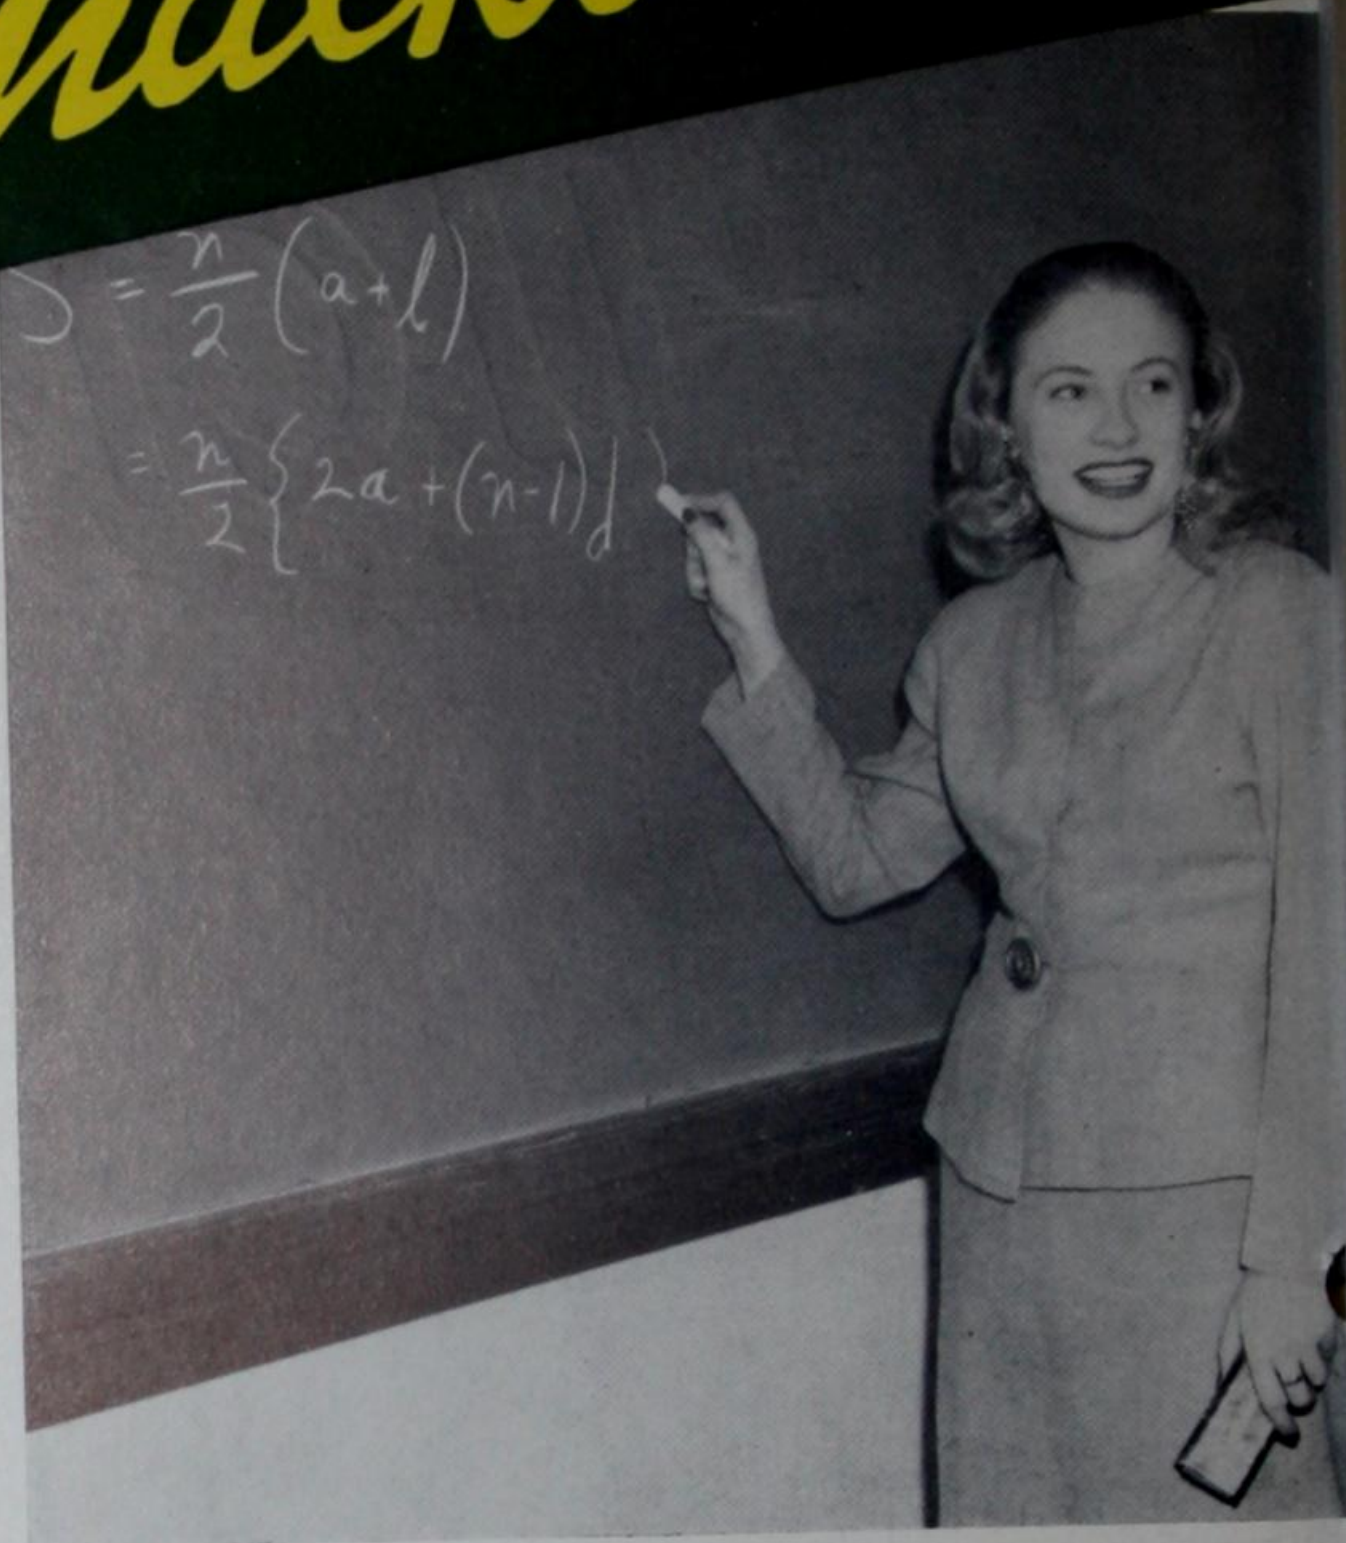 S = n/2 (a+l)
= n/2 {2a + (n-1)d }